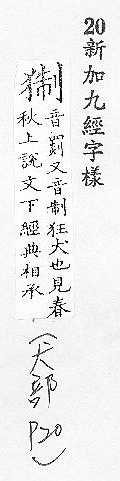 20新加九經字樣
猘
音罰又音制狂犬也見春
秋上說文下經典相承
(犬部 P20)